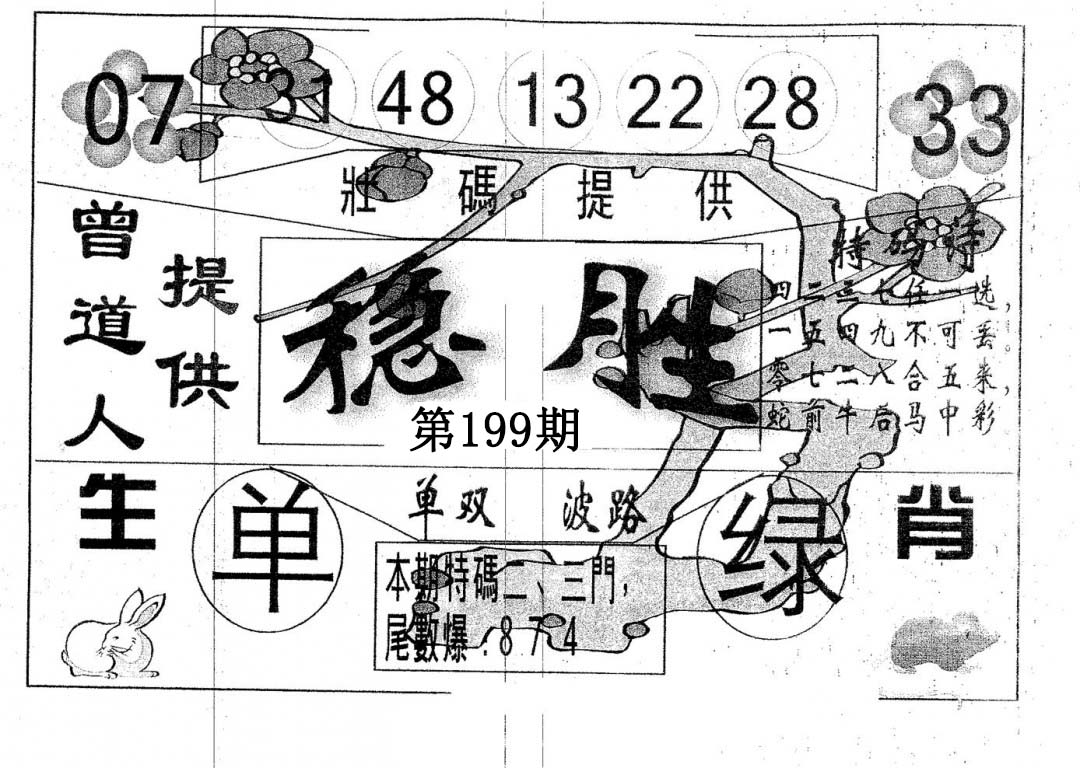 07 31 48 13 22 28 33
壯碼提供
曾道人
提供
稳胜
第199期
特码诗
四二三七任一选，
一五四九不可丢。
零七二八合五来，
蛇前牛后马中彩
生肖
单双 波路
单
绿
本期特碼二、三門，
尾數爆：874